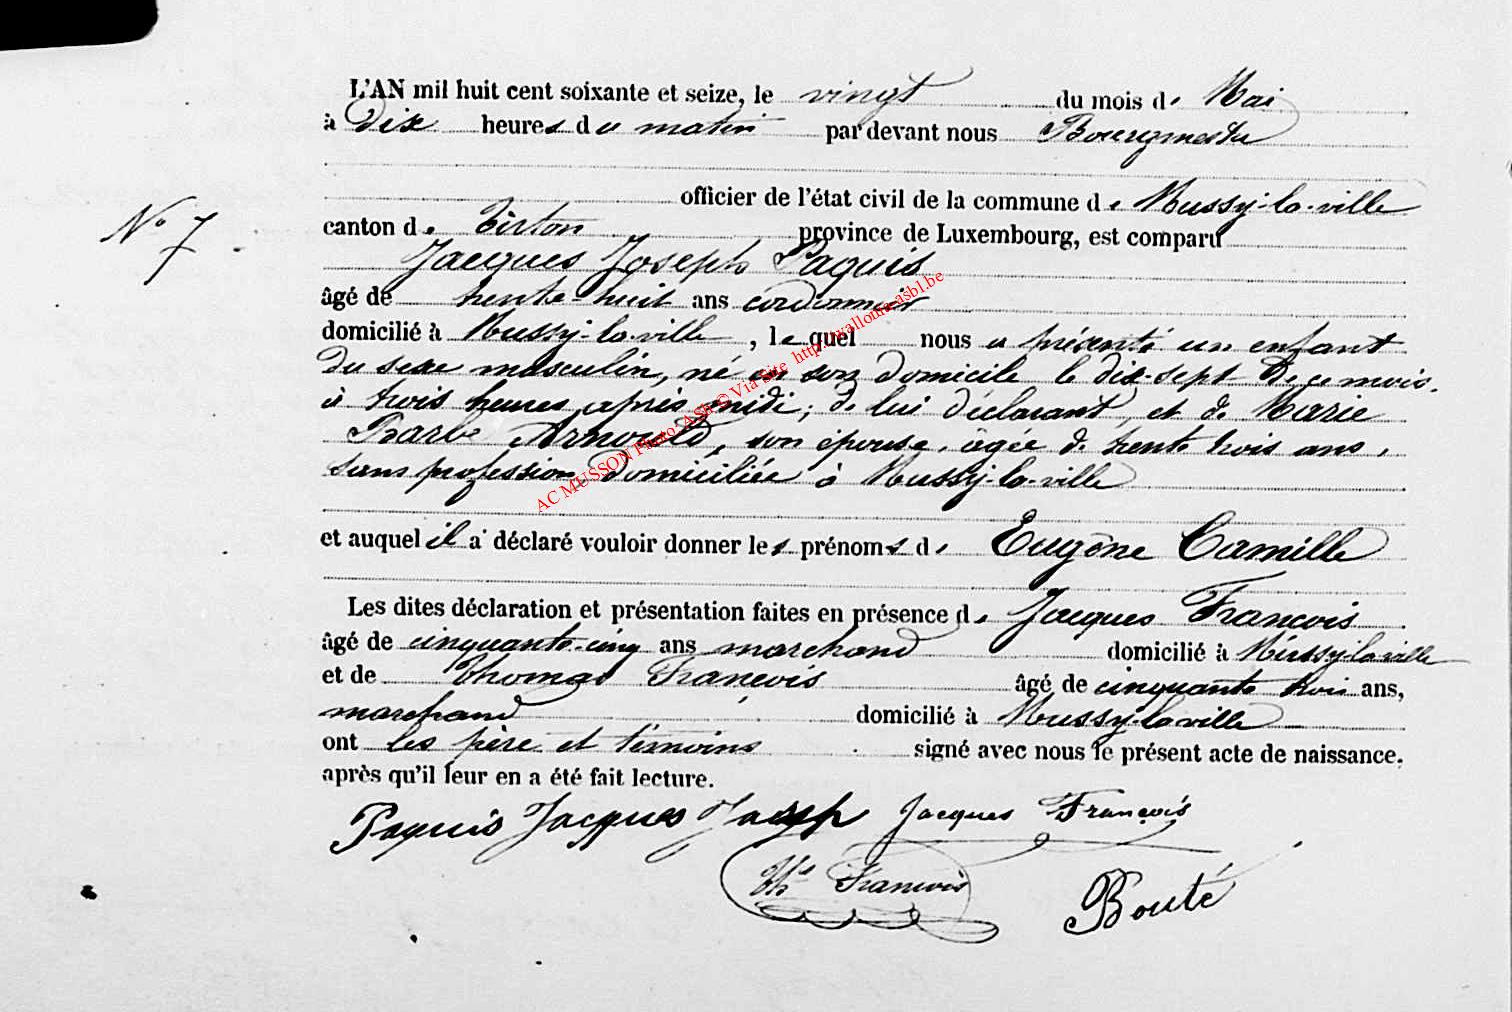 L'AN mil huit cent soixante et seize, le vingt du mois de Mai
à Dix heures du matin par devant nous Bourgmestre
officier de l'état civil de la commune de Mussy-la-ville
N° 7
canton de Virton province de Luxembourg, est comparu
Jacques Joseph Paquis
âgé de trente-huit ans cordonnier
domicilié à Mussy-la-ville, lequel nous a présenté un enfant
du sexe masculin, né en son domicile le dix-sept de ce mois.
à trois heures après midi; de lui déclarant, et de Marie
Barbe Arnould, son épouse, âgée de trente trois ans,
sans profession, domiciliée à Mussy-la-ville
et auquel il a déclaré vouloir donner les prénoms de Eugène Camille
Les dites déclaration et présentation faites en présence de Jacques François
âgé de cinquante-cinq ans marchand domicilié à Mussy-la-ville
et de Thomas François âgé de cinquante trois ans,
marchand domicilié à Mussy-la-ville
ont les père et témoins signé avec nous le présent acte de naissance.
après qu'il leur en a été fait lecture.
Paquis Jacques Joseph Jacques François
Th. François Bouté
AC MUSSON Photo Asbl © Via Site http://wallonia-asbl.be